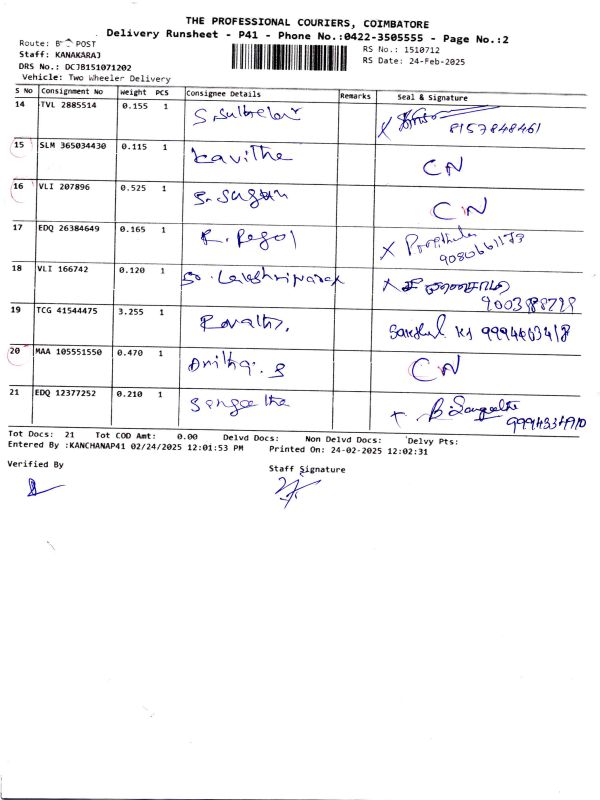 THE PROFESSIONAL COURIERS, COIMBATORE
Delivery Runsheet - P41 - Phone No.:0422-3505555 - Page No.:2
Route: POST
Staff: KANAKARAJ
DRS No.: DCJB151071202
Vehicle: Two Wheeler Delivery
RS No.: 1510712
RS Date: 24-Feb-2025
S No Consignment No Weight PCS Consignee Details Remarks Seal & Signature
14 TVL 2885514 0.155 1 X 8157848461
15 SLM 365034430 0.115 1 Kavitha CN
16 VLI 207896 0.525 1 CN
17 EDQ 26384649 0.165 1 X
18 VLI 166742 0.120 1 X
19 TCG 41544475 3.255 1 Revathi.
20 MAA 105551550 0.470 1 Anitha. S CN
21 EDQ 12377252 0.210 1 Sangeetha B. Sangeetha
Tot Docs: 21 Tot COD Amt: 0.00 Delvd Docs: Non Delvd Docs: Delvy Pts:
Entered By :KANCHANAP41 02/24/2025 12:01:53 PM Printed On: 24-02-2025 12:02:31
Verified By Staff Signature